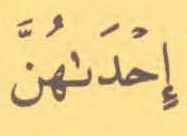 إِحْدَىٰهُنَّ